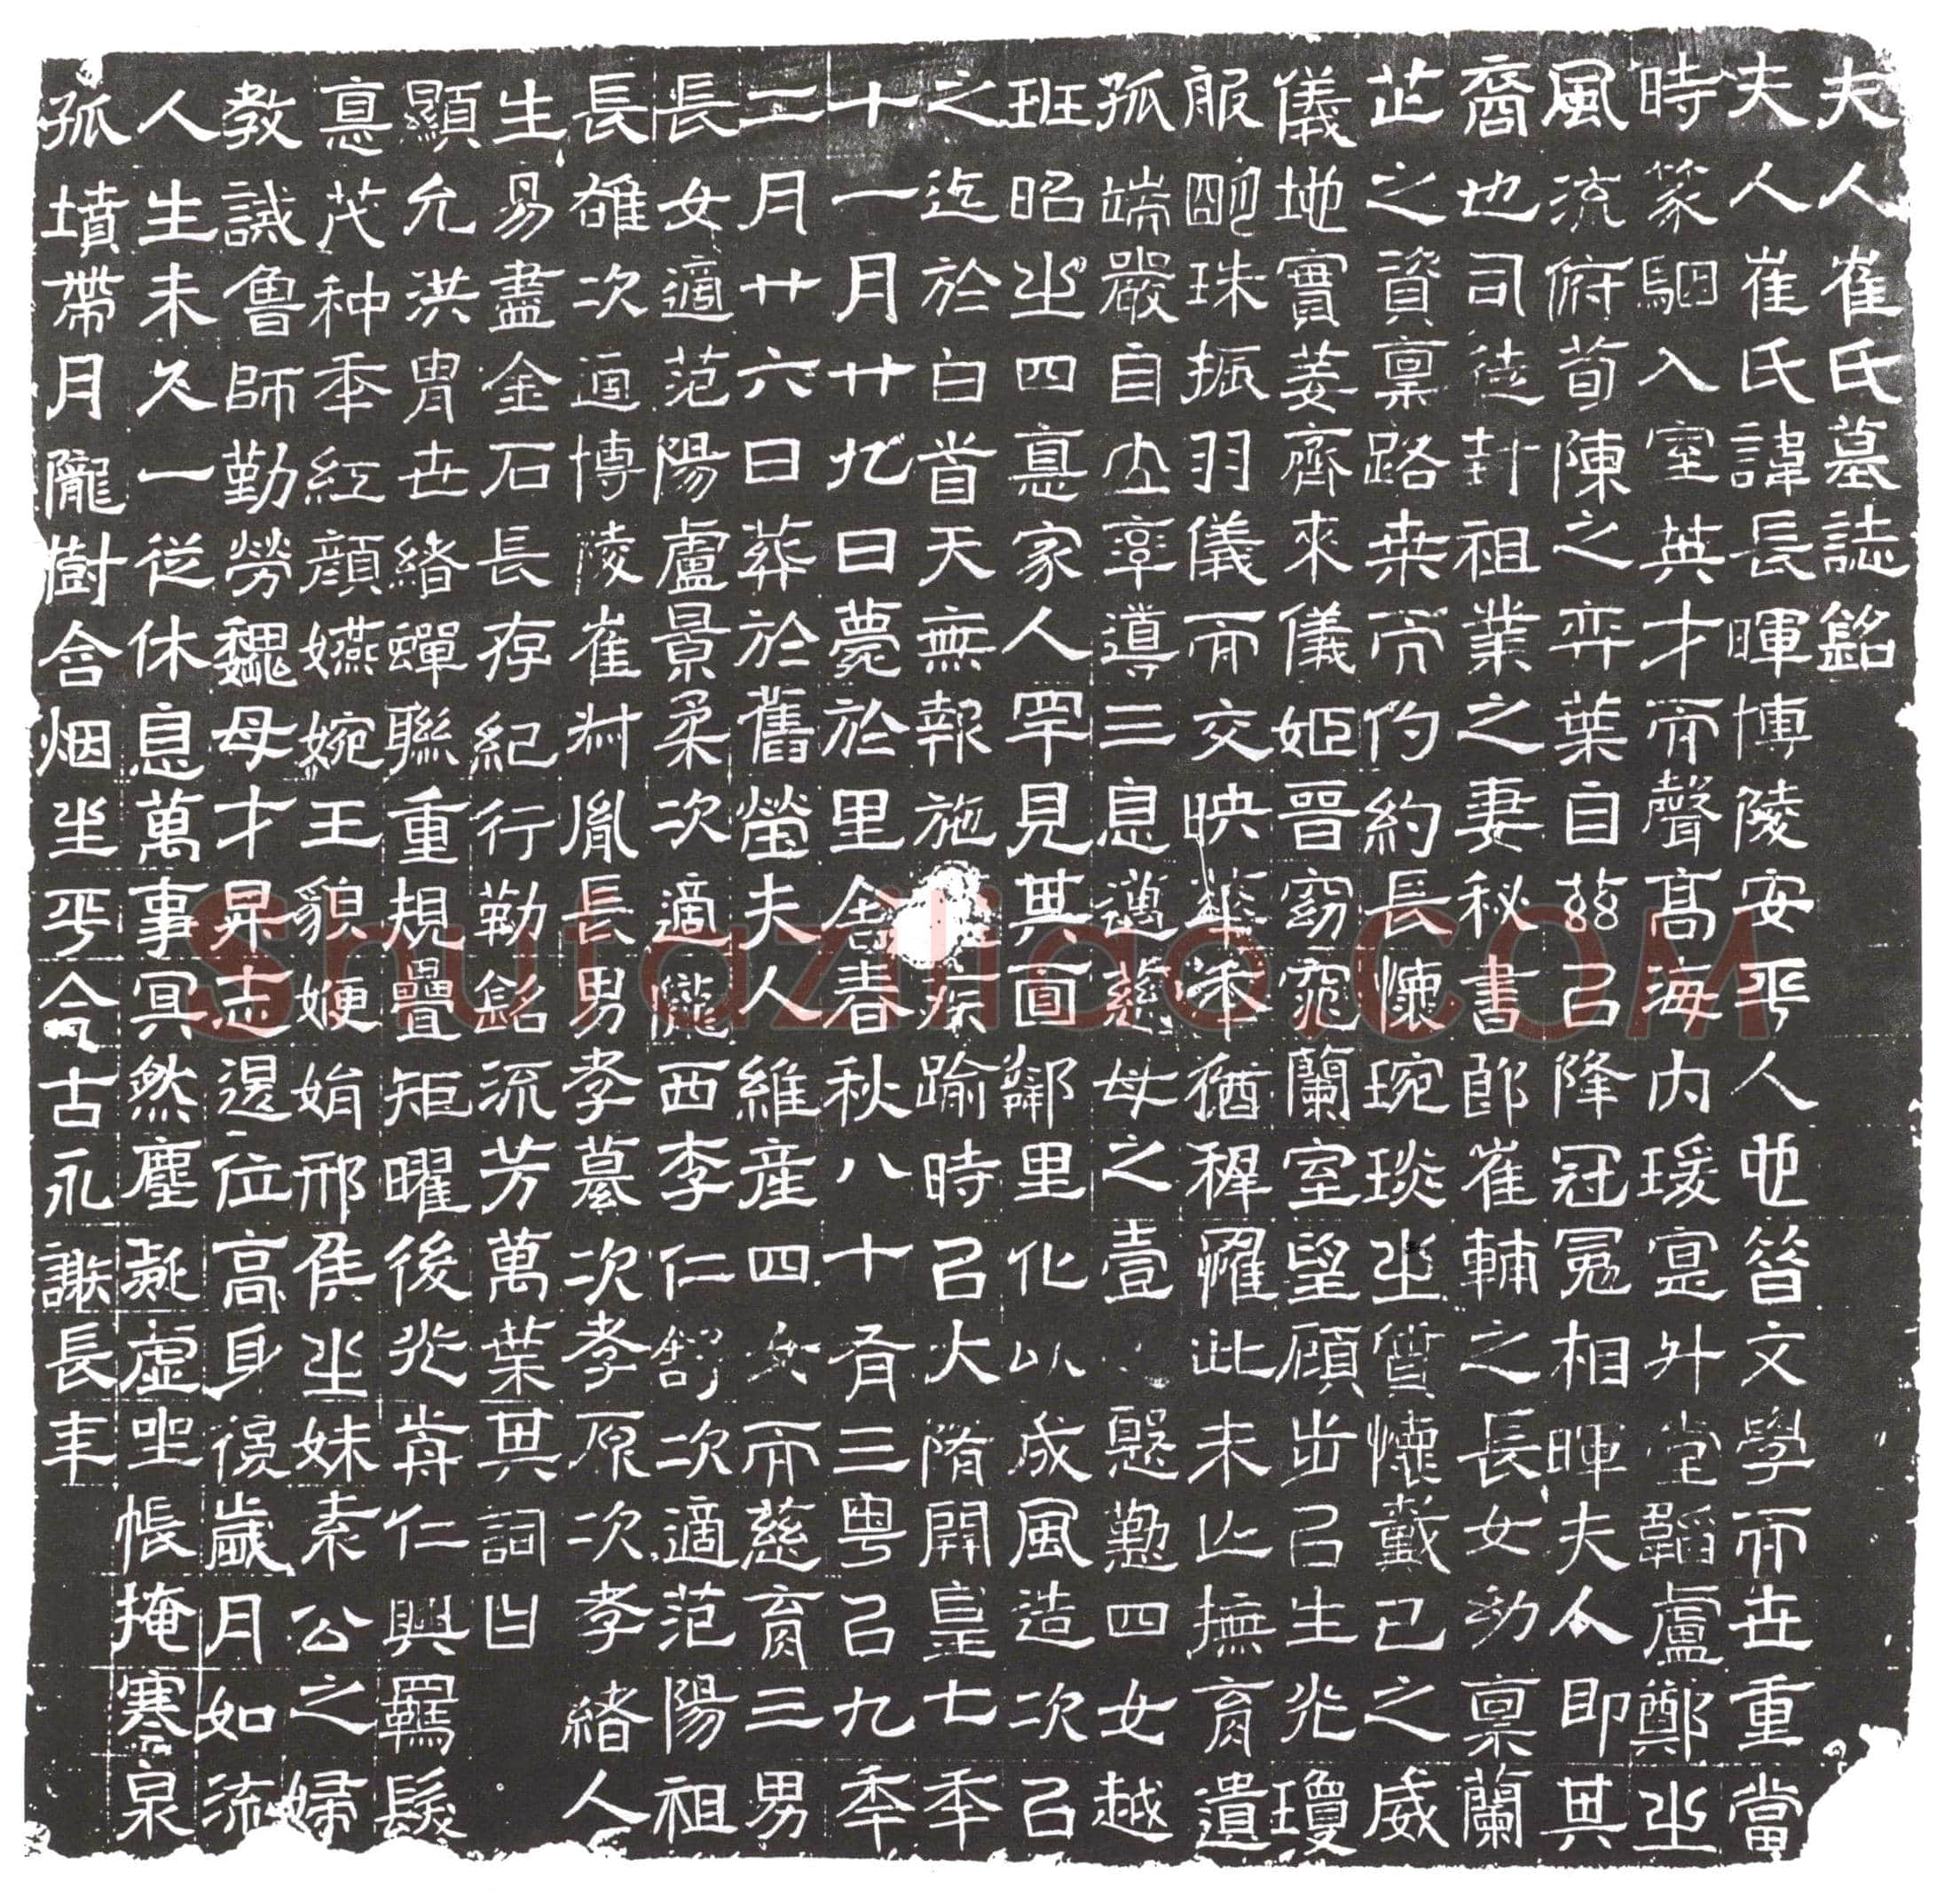 夫人崔氏墓誌銘
夫人崔氏諱長暉博陵安平人也昝文學而世重當
時篆駰入室英才而聲高海内瑗寔外堂韜盧鄭㞢
風流俯荀陳之弈葉自兹㠯降冠冕相暉夫人即其
裔也司徒封祖業之妻秘書郎崔輔之長女幼稟蘭
芷之資稟路桒而灼約長懷琬琰㞢質懷戴己之威
儀地實姜齊來儀姬晉窈窕蘭室望顧步㠯生光瓊
服珠振羽儀而交映猶稺此未亡撫育遺
孤端嚴自立率導三息邁慈母之壹慇懃四女越
班昭㞢四悳家人罕見其面鄰里化以成風造次㠯
之迄於白首天無報施疾踰時㠯大隋開皇七年
十一月廿九日薨於里舍春秋八十有三粤㠯九年
二月廿六日葬於舊塋夫人維産四女而慈育三男
長女適范陽盧景柔次適隴西李仁舒次適范陽祖
長雄次適博陵崔叔胤長男孝纂次孝原次孝緒人
生易盡金石長存紀行勒銘流芳萬葉其詞曰
顯允洪胄世緒蟬聯重規疊矩曜後光前仁興羈髮
悳茂种年紅顔嬿婉王貌㛹娟邢侯㞢妹素公之婦
教誡魯師勤勞魏母才昇志遏位高身後歲月如流
人生未久一從休息萬事冥然塵凝虚坐帳掩寒泉
孤墳帶月隴樹含烟坐平今古永謝長年
Shufaziliao.COM